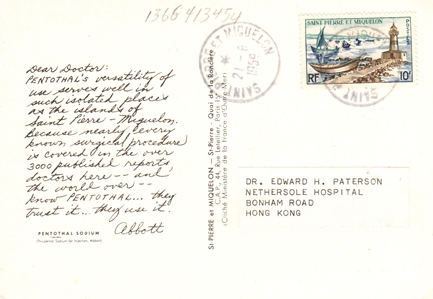 1366 413454
Dear Doctor:
PENTOTHAL'S versatility of
use serves well in
such isolated places
as the islands of
Saint Pierre - Miquelon.
Because nearly every
known surgical procedure
is covered in the over
3000 published reports
doctors here -- and
the world over --
know PENTOTHAL... they
trust it... they use it.
Abbott
PENTOTHAL SODIUM
ST-PIERRE et MIQUELON - St-Pierre - Quai de la Roncière
C.A.P., 44, Rue Letellier, Paris-15e
(Cliché Ministère de la France d'Outre-Mer)
ET MIQUELON
SAINT
SAINT PIERRE ET MIQUELON
POSTES
RF
10F
DR. EDWARD H. PATERSON
NETHERSOLE HOSPITAL
BONHAM ROAD
HONG KONG